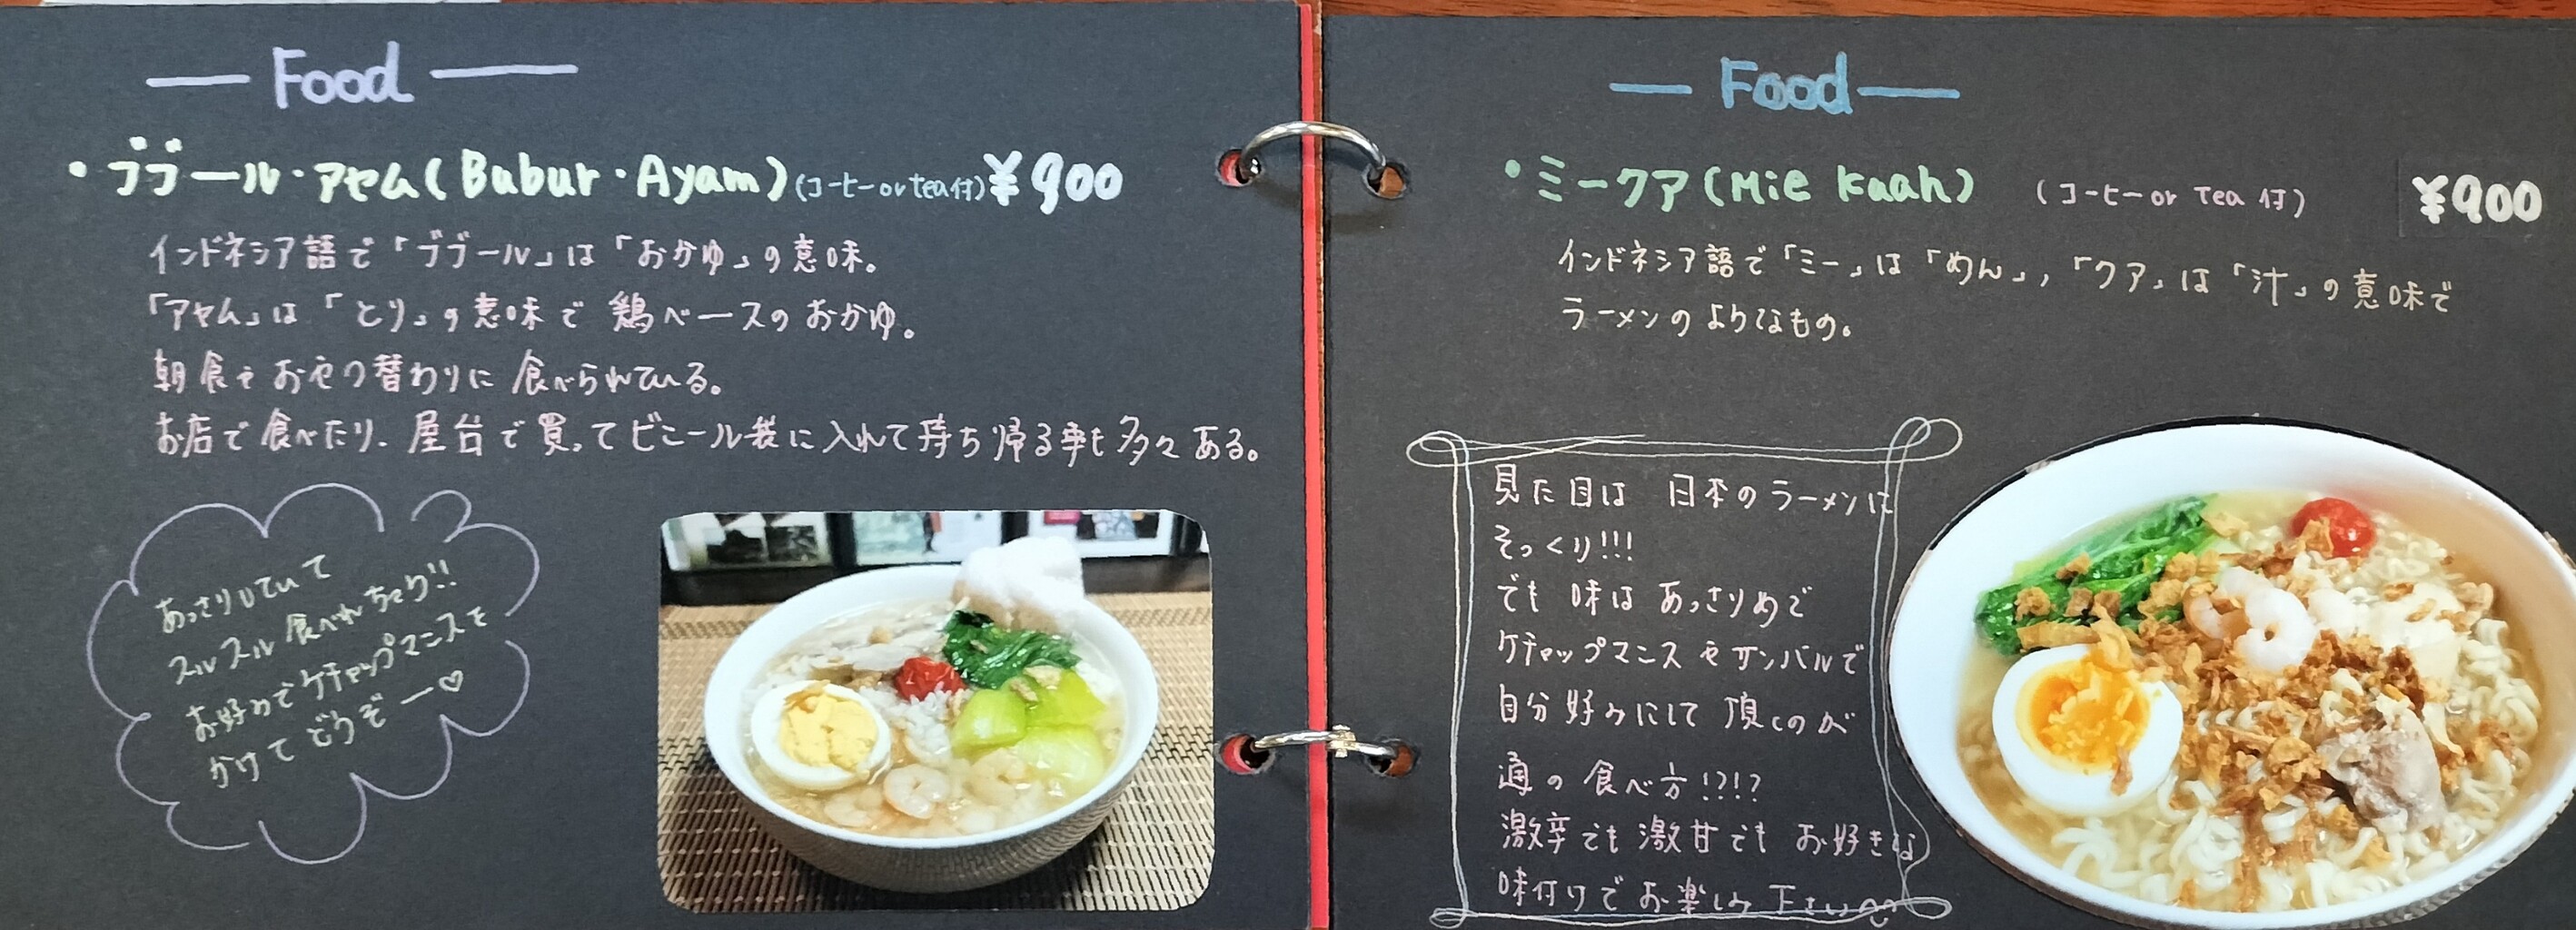 — Food —
・ブブール・アヤム(Bubur・Ayam)(コーヒー or tea付)¥900
インドネシア語で「ブブール」は「おかゆ」の意味。
「アヤム」は「とり」の意味で鶏ベースのおかゆ。
朝食やおやつ替わりに食べられている。
お店で食べたり、屋台で買ってビニール袋に入れて持ち帰る事も多々ある。
あっさりしていて
スルスル食べれちゃう!!
お好みでケチャップマニスを
かけてどうぞー♡
— Food —
・ミークア(Mie Kuah) (コーヒー or Tea付) ¥900
インドネシア語で「ミー」は「めん」,「クア」は「汁」の意味で
ラーメンのようなもの。
見た目は日本のラーメンに
そっくり!!!
でも味はあっさりめで
ケチャップマニスやサンバルで
自分好みにして頂くのが
通の食べ方!?!?
激辛でも激甘でもお好きな
味付けでお楽しみ下さい♡